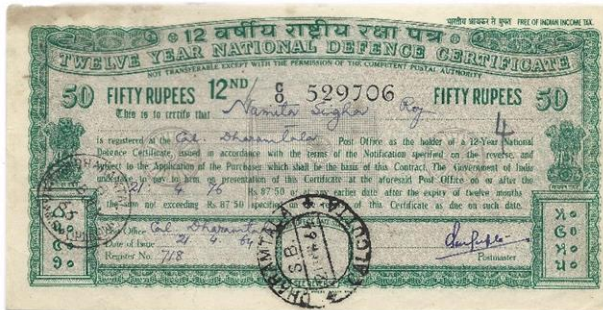 भारतीय आयकर से मुक्त FREE OF INDIAN INCOME TAX.
१२ वर्षीय राष्ट्रीय रक्षा पत्र
TWELVE YEAR NATIONAL DEFENCE CERTIFICATE
NOT TRANSFERABLE EXCEPT WITH THE PERMISSION OF THE COMPETENT POSTAL AUTHORITY
50 FIFTY RUPEES 12ND/ C/0 529706 FIFTY RUPEES 50
This is to certify that Namita Singha Roy
4
is registered at the Cal. Dharamtala Post Office as the holder of a 12-Year National
Defence Certificate, issued in accordance with the terms of the Notification specified on the reverse, and
subject to the Application of the Purchaser which shall be the basis of this Contract. The Government of India
undertake to pay to him on presentation of this Certificate at the aforesaid Post Office on or after the
21. 4. 76 Rs 87·50 or at any earlier date after the expiry of twelve months
the sum not exceeding Rs 87·50 specified on the reverse of this Certificate as due on such date.
Post Office Cal. Dharamtala
Date of Issue 21 4. 64
Register No. 718
Postmaster
DHARAMTALA
CALCUTTA
S.B.